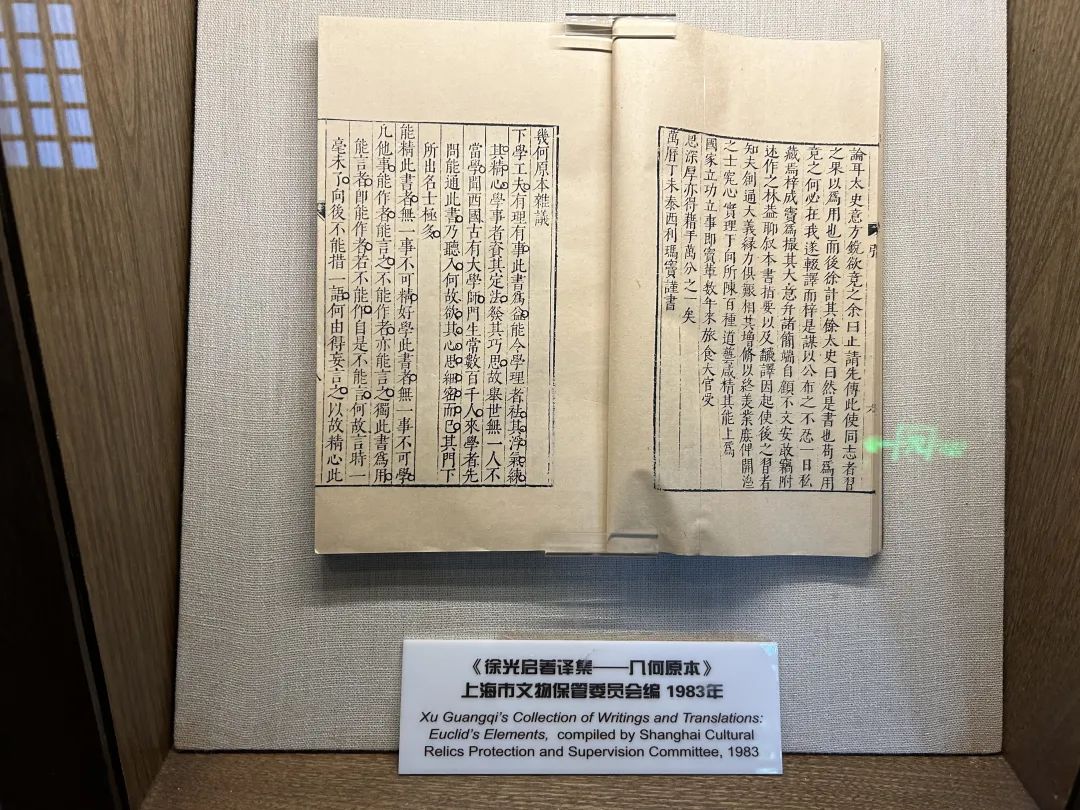 論耳太史意方銳欲竟之余曰止請先傳此使同志者習
之果以為用也而後徐計其餘太史曰然是書也苟為用
竟之何必在我遂輟譯而梓是謀以公布之不忍一日私
藏焉梓成竇為撮其大意弁諸簡端自顧不文安敢竊附
述作之林蓋聊叙本書指要以及繙譯因起使後之習者
知夫創通大義緣力俱艱相共增修以終美業庶俾開濟
之士究心實理于向所陳百種道藝咸精其能上為
國家立功立事即竇輩數年來旅食大官受
恩深厚亦得藉手萬分之一矣
萬曆丁未泰西利瑪竇謹書
幾何原本雜議
下學工夫有理有事此書為益能令學理者祛其浮氣練
其精心學事者資其定法發其巧思故舉世無一人不
當學聞西國古有大學師門生常數百千人來學者先
問能通此書乃聽入何故欲其心思細密而已其門下
所出名士極多
能精此書者無一事不可精好學此書者無一事不可學
凡他事能作者能言之不能作者亦能言之獨此書為用
能言者即能作者若不能作自是不能言何故言時一
毫未了向後不能措一語何由得妄言之以故精心此
《徐光启著译集——几何原本》
上海市文物保管委员会编 1983年
Xu Guangqi's Collection of Writings and Translations:
Euclid's Elements, compiled by Shanghai Cultural
Relics Protection and Supervision Committee, 1983